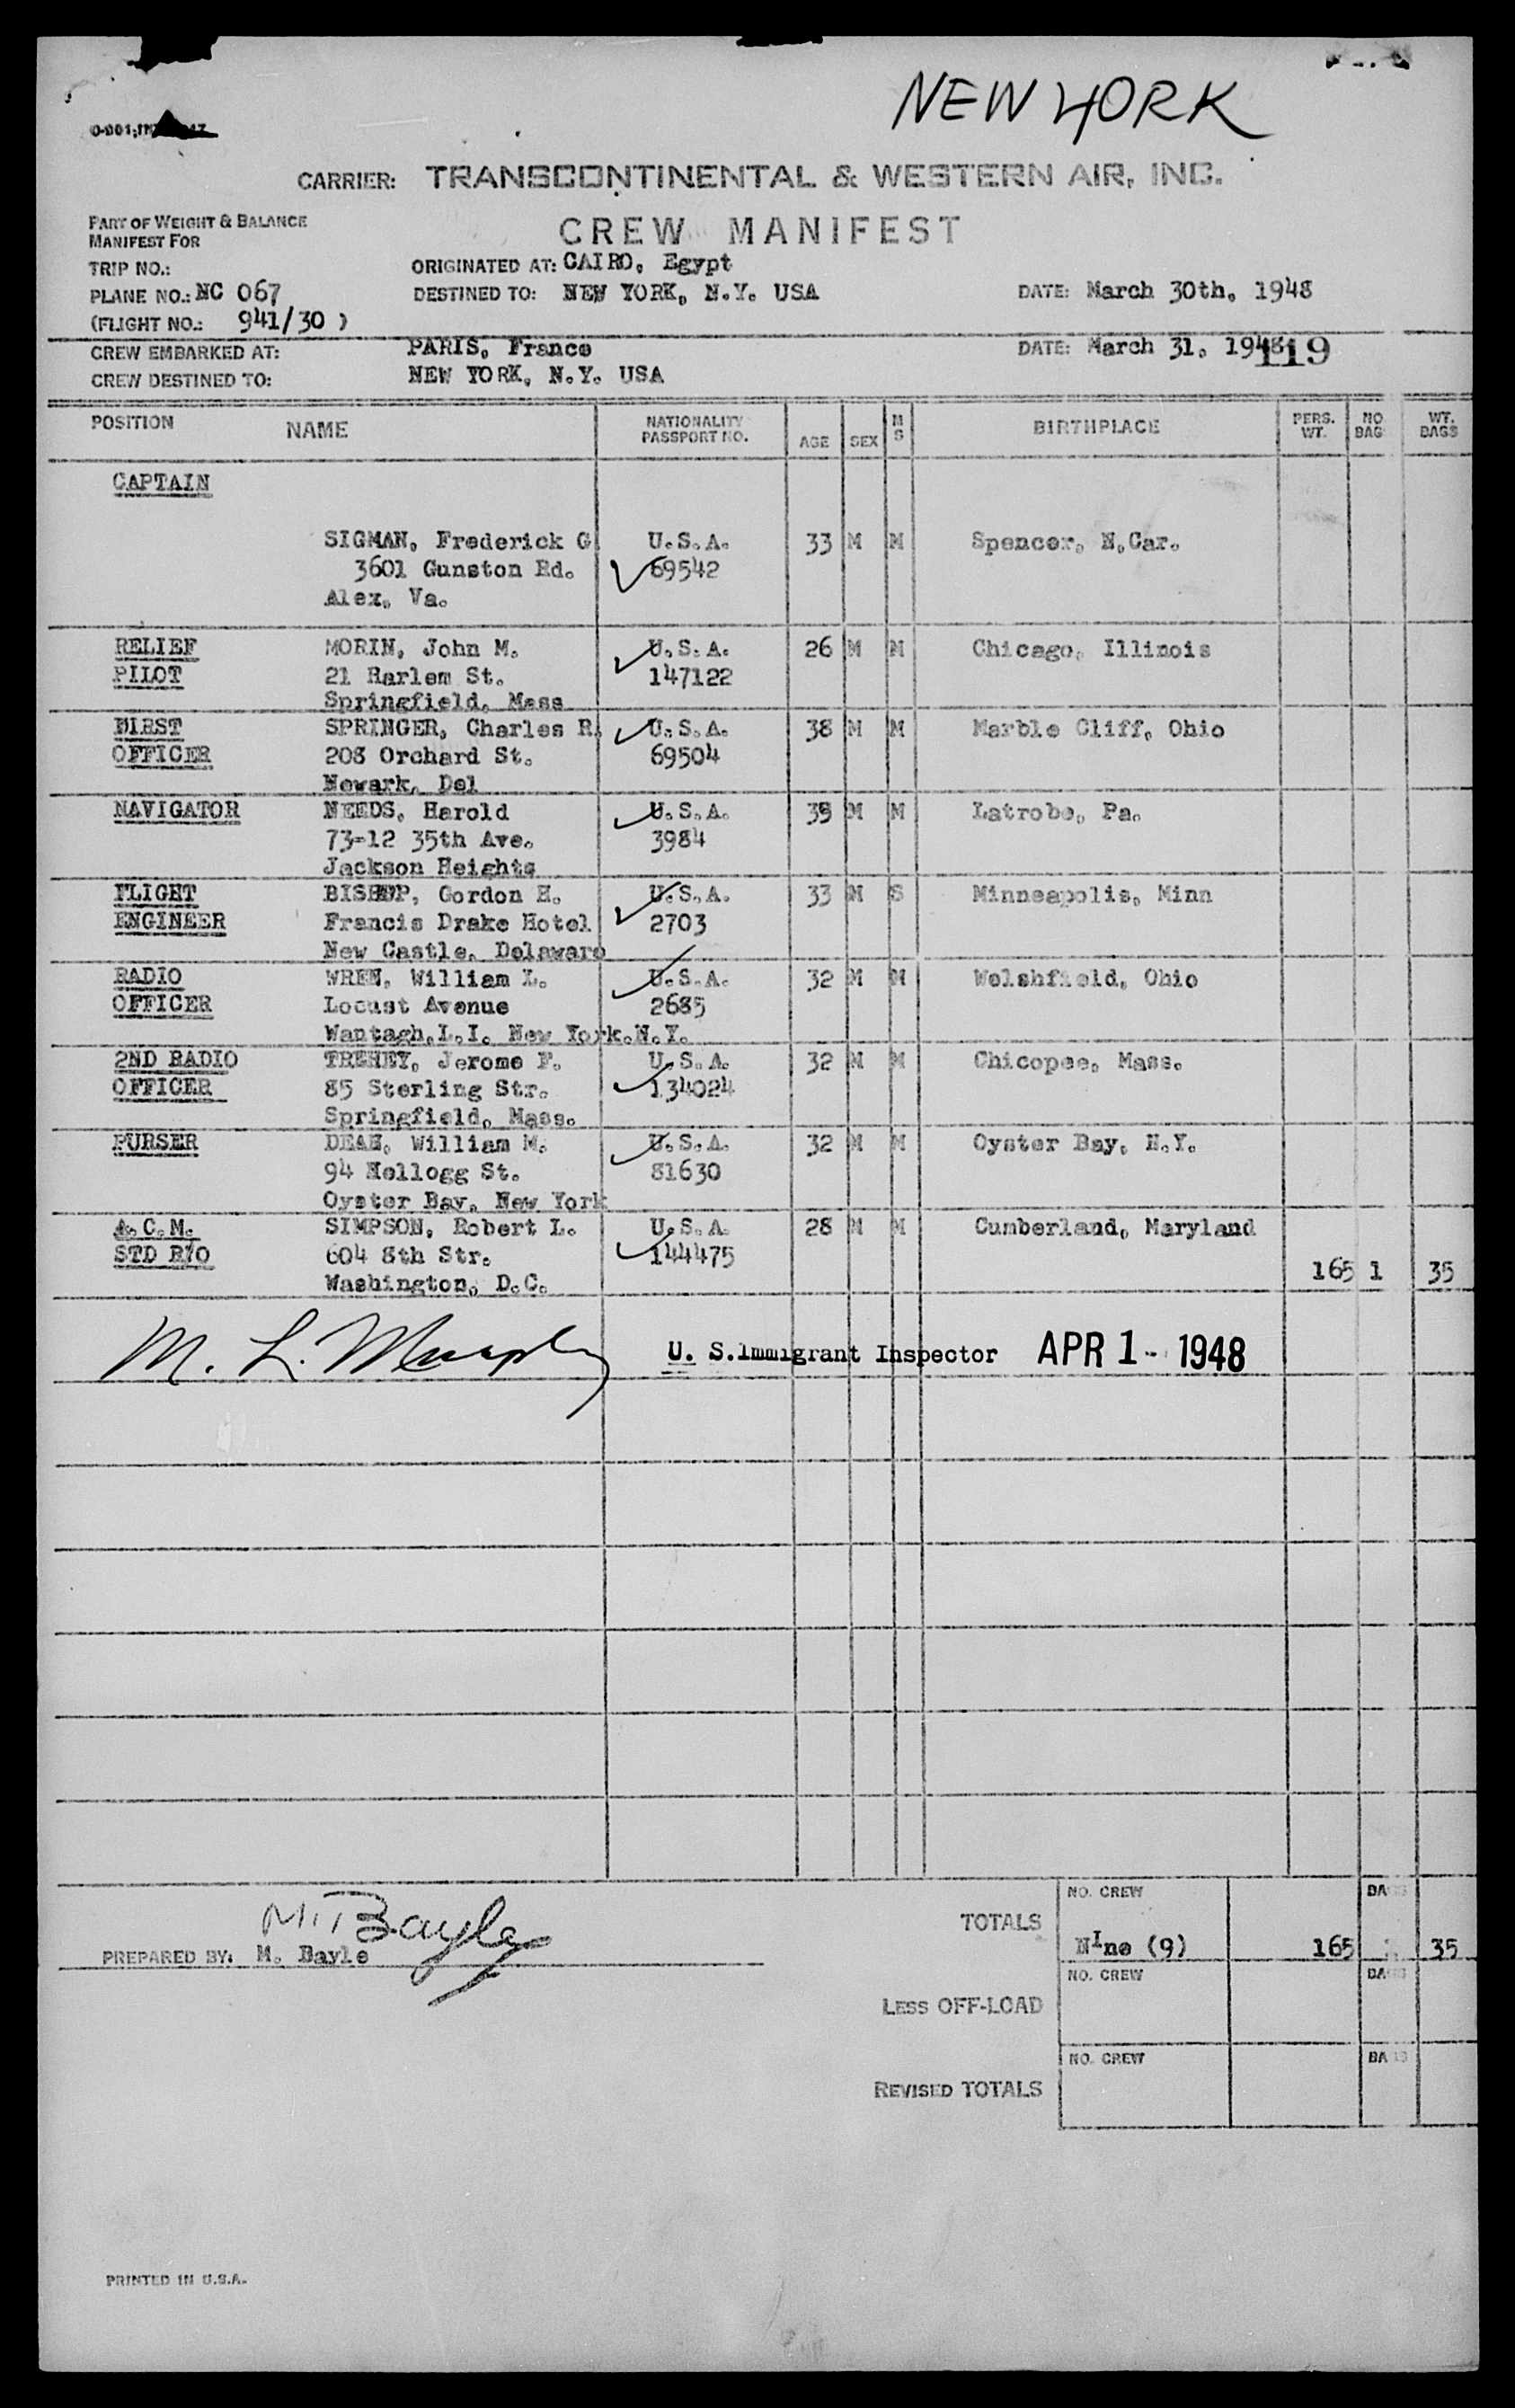 NEW YORK
CARRIER: TRANSCONTINENTAL & WESTERN AIR, INC.
PART OF WEIGHT & BALANCE
MANIFEST FOR
CREW MANIFEST
TRIP NO.: ORIGINATED AT: CAIRO, Egypt
PLANE NO.: NC 067 DESTINED TO: NEW YORK, N.Y. USA DATE: March 30th, 1948
(FLIGHT NO.: 941/30 )
CREW EMBARKED AT: PARIS, France DATE: March 31, 1948 119
CREW DESTINED TO: NEW YORK, N.Y. USA
POSITION NAME NATIONALITY PASSPORT NO. AGE SEX M S BIRTHPLACE PERS. WT. NO BAG WT. BAGS
CAPTAIN
SIGMAN, Frederick G U.S.A. 33 M M Spencer, N.Car.
3601 Gunston Rd. 69542
Alex, Va.
RELIEF MORIN, John M. U.S.A. 26 M M Chicago, Illinois
PILOT 21 Harlem St. 147122
Springfield, Mass
FIRST SPRINGER, Charles R. U.S.A. 38 M M Marble Cliff, Ohio
OFFICER 208 Orchard St. 69504
Newark, Del
NAVIGATOR NEEDS, Harold U.S.A. M M Latrobe, Pa.
73-12 35th Ave. 3984
Jackson Heights
FLIGHT BISHOP, Gordon H. U.S.A. 33 M S Minneapolis, Minn
ENGINEER Francis Drake Hotel 2703
New Castle, Delaware
RADIO WREN, William L. U.S.A. 32 M M Welshfield, Ohio
OFFICER Locust Avenue 2685
Wantagh,L.I. New York.N.Y.
2ND RADIO Jerome F. U.S.A. 32 M M Chicopee, Mass.
OFFICER 85 Sterling Str. 134024
Springfield, Mass.
PURSER DEAN, William M. U.S.A. 32 M M Oyster Bay, N.Y.
94 Kellogg St. 81630
Oyster Bay, New York
A.C.M. SIMPSON, Robert L. U.S.A. 28 M M Cumberland, Maryland
STD R/O 604 8th Str. 144475 165 1 35
Washington, D.C.
M. L. Murphy U. S. Immigrant Inspector APR 1 - 1948
NO. CREW BAGS
M. Bayle TOTALS
PREPARED BY: M. Bayle NIne (9) 165 35
NO. CREW BAGS
LESS OFF-LOAD
NO. CREW BAGS
REVISED TOTALS
PRINTED IN U.S.A.